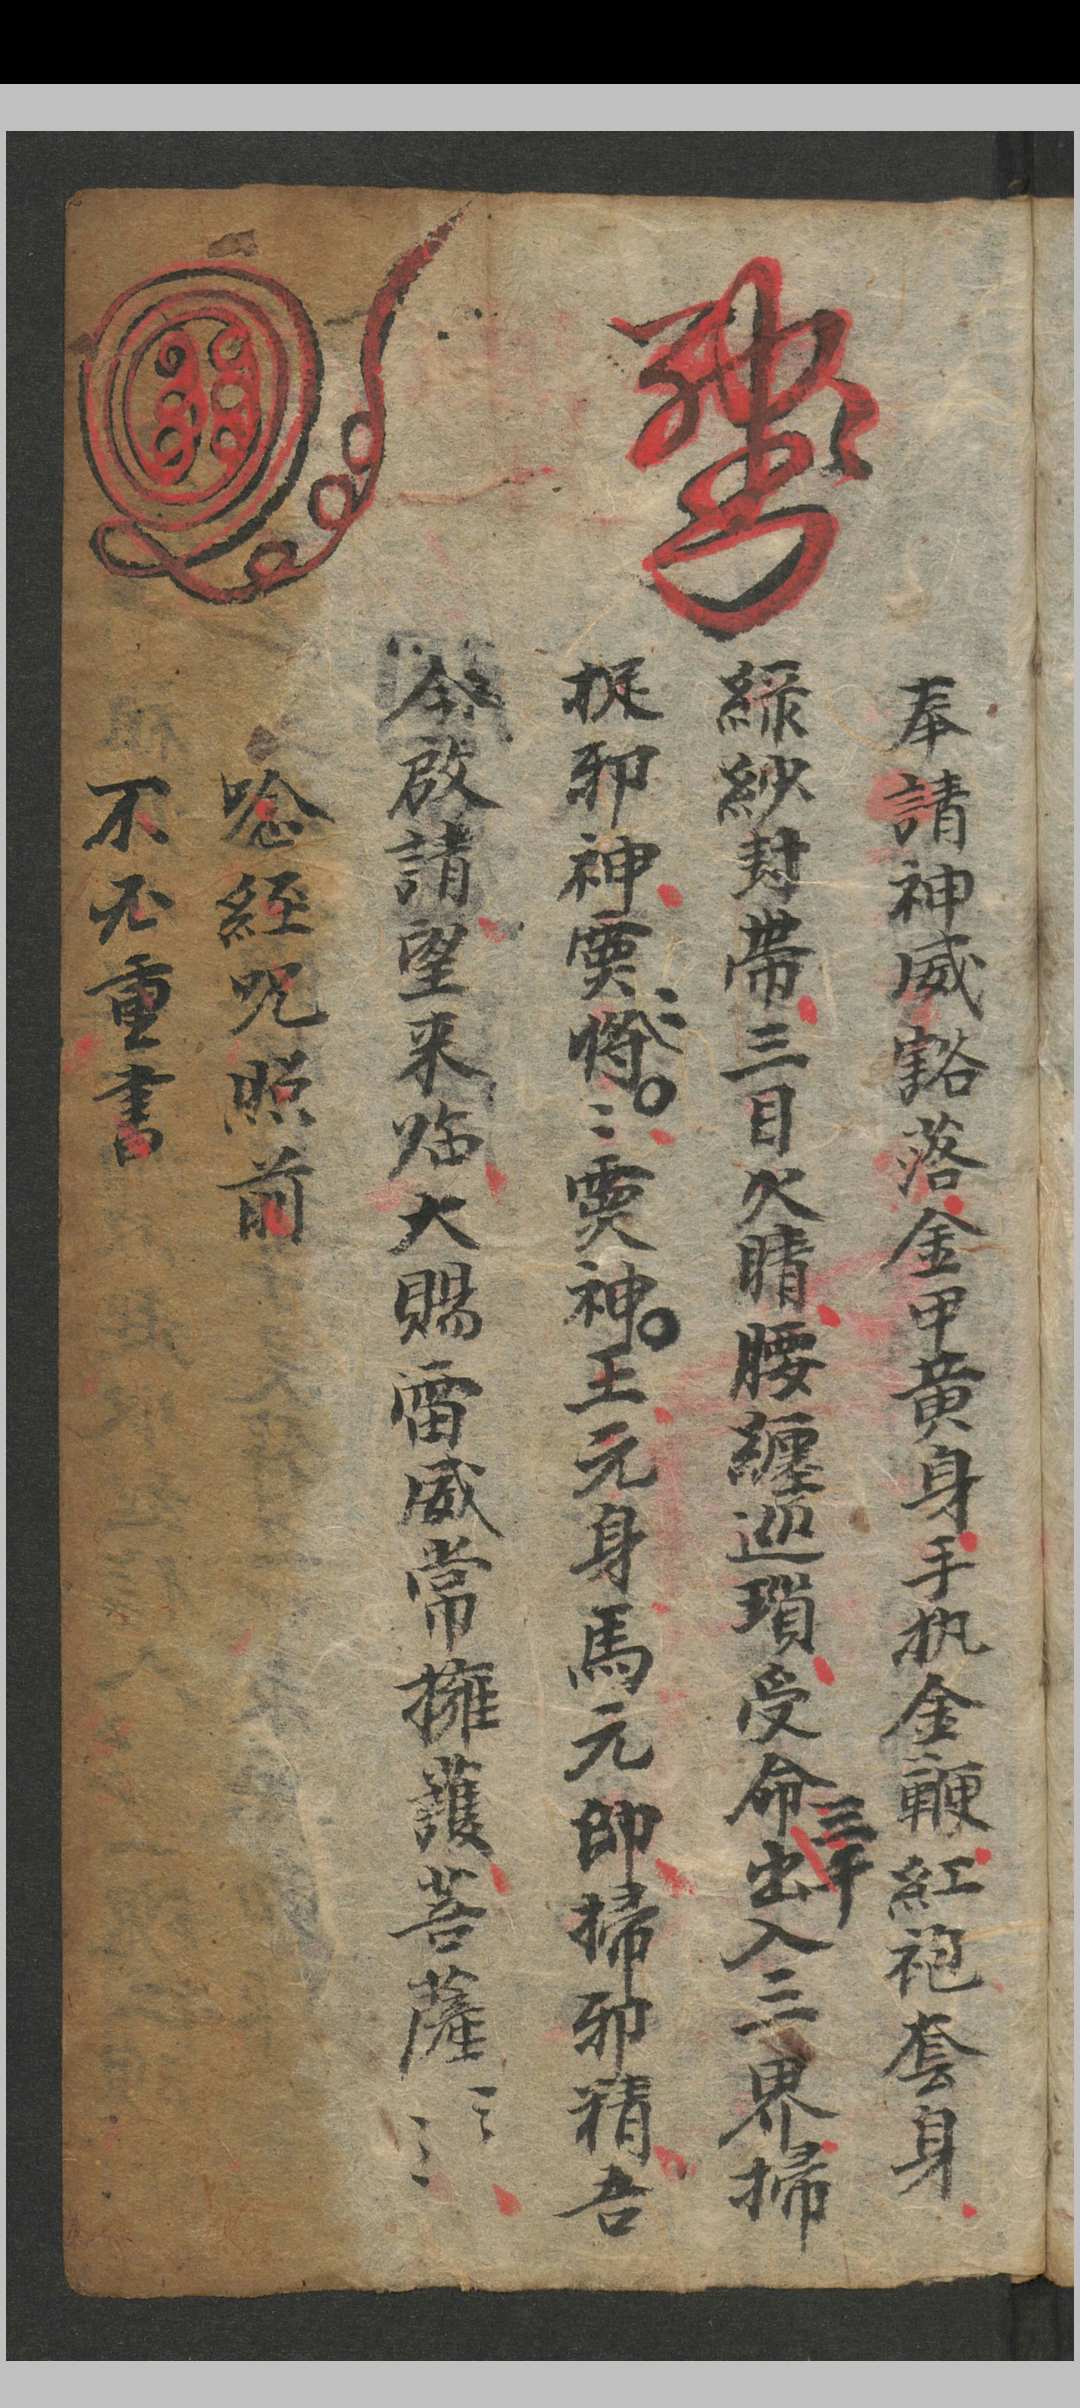 奉請神威豁落金甲黄身手执金鞭紅袍套身
緑紗封帶三目火睛腰纏巡瑣受命三千出入三界掃
捉邪神霊得〻〻霊神王元身馬元帥掃邪精吾
今啟請望来临大賜雷威常擁護菩薩〻〻
唸經咒照前
不必重書